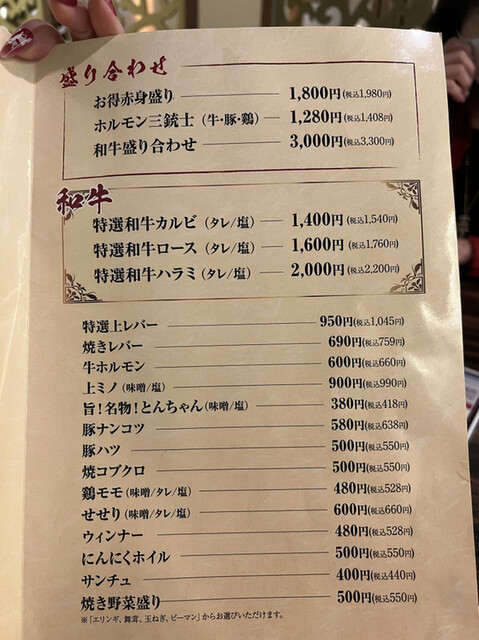 盛り合わせ
お得赤身盛り 1,800円(税込1,980円)
ホルモン三銃士（牛・豚・鶏） 1,280円(税込1,408円)
和牛盛り合わせ 3,000円(税込3,300円)
和牛
特選和牛カルビ（タレ/塩） 1,400円(税込1,540円)
特選和牛ロース（タレ/塩） 1,600円(税込1,760円)
特選和牛ハラミ（タレ/塩） 2,000円(税込2,200円)
特選上レバー 950円(税込1,045円)
焼きレバー 690円(税込759円)
牛ホルモン 600円(税込660円)
上ミノ（味噌/塩） 900円(税込990円)
旨！名物！とんちゃん（味噌/塩） 380円(税込418円)
豚ナンコツ 580円(税込638円)
豚ハツ 500円(税込550円)
焼コブクロ 500円(税込550円)
鶏モモ（味噌/タレ/塩） 480円(税込528円)
せせり（味噌/タレ/塩） 600円(税込660円)
ウィンナー 480円(税込528円)
にんにくホイル 500円(税込550円)
サンチュ 400円(税込440円)
焼き野菜盛り 500円(税込550円)
※「エリンギ、舞茸、玉ねぎ、ピーマン」からお選びいただけます。